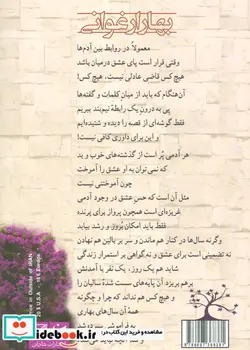 بهار ارغوانی
معمولاً در روابط بین آدم‌ها
وقتی قرار است پای عشق درمیان باشد
هیچ کس قاضی عادلی نیست، هیچ کس!
آن‌هنگام که باید از میان کلمات و گفته‌ها
پی به درون یک رابطهٔ نیم‌بند ببریم
فقط گوشه‌ای از قصه را دیده و شنیده‌ایم
و این برای داوری کافی نیست!
هر آدمی پُر است از گذشته‌های خوب و بد
که نمی‌توان با حذفِ آن به او عشق را آموخت
چون آموختنی نیست
مثل آن است که حسِ عشق در وجود آدمی
غریزه‌ای است همچون پرواز برای پرنده
فقط باید امکانِ بُروز و رشد بیابد
وگرنه سال‌ها در کنار هم ماندن و سر بر بالین هم نهادن
نه تضمینی برای عشق و نه‌گواهی بر استمرار زندگی
شاید هم یک روز، یک نفر با آمدنش
برهم بریزد آن پایه‌های سست شدهٔ سالیان را
و هیچ کس هم نداند که چرا و چگونه
مشاهده و خرید این کتاب در: